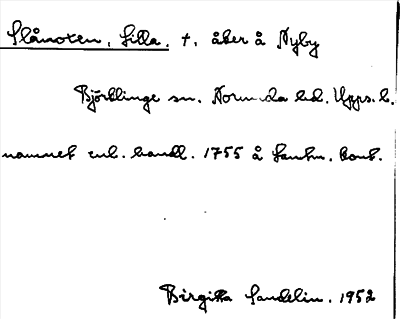 Slånoten, Lilla. †. åker å Nyby
Björklinge sn. Norunda hd. Upps. l.
namnet enl. handl. 1755 å Lantm. kont.
Birgitta Sandelin. 1952